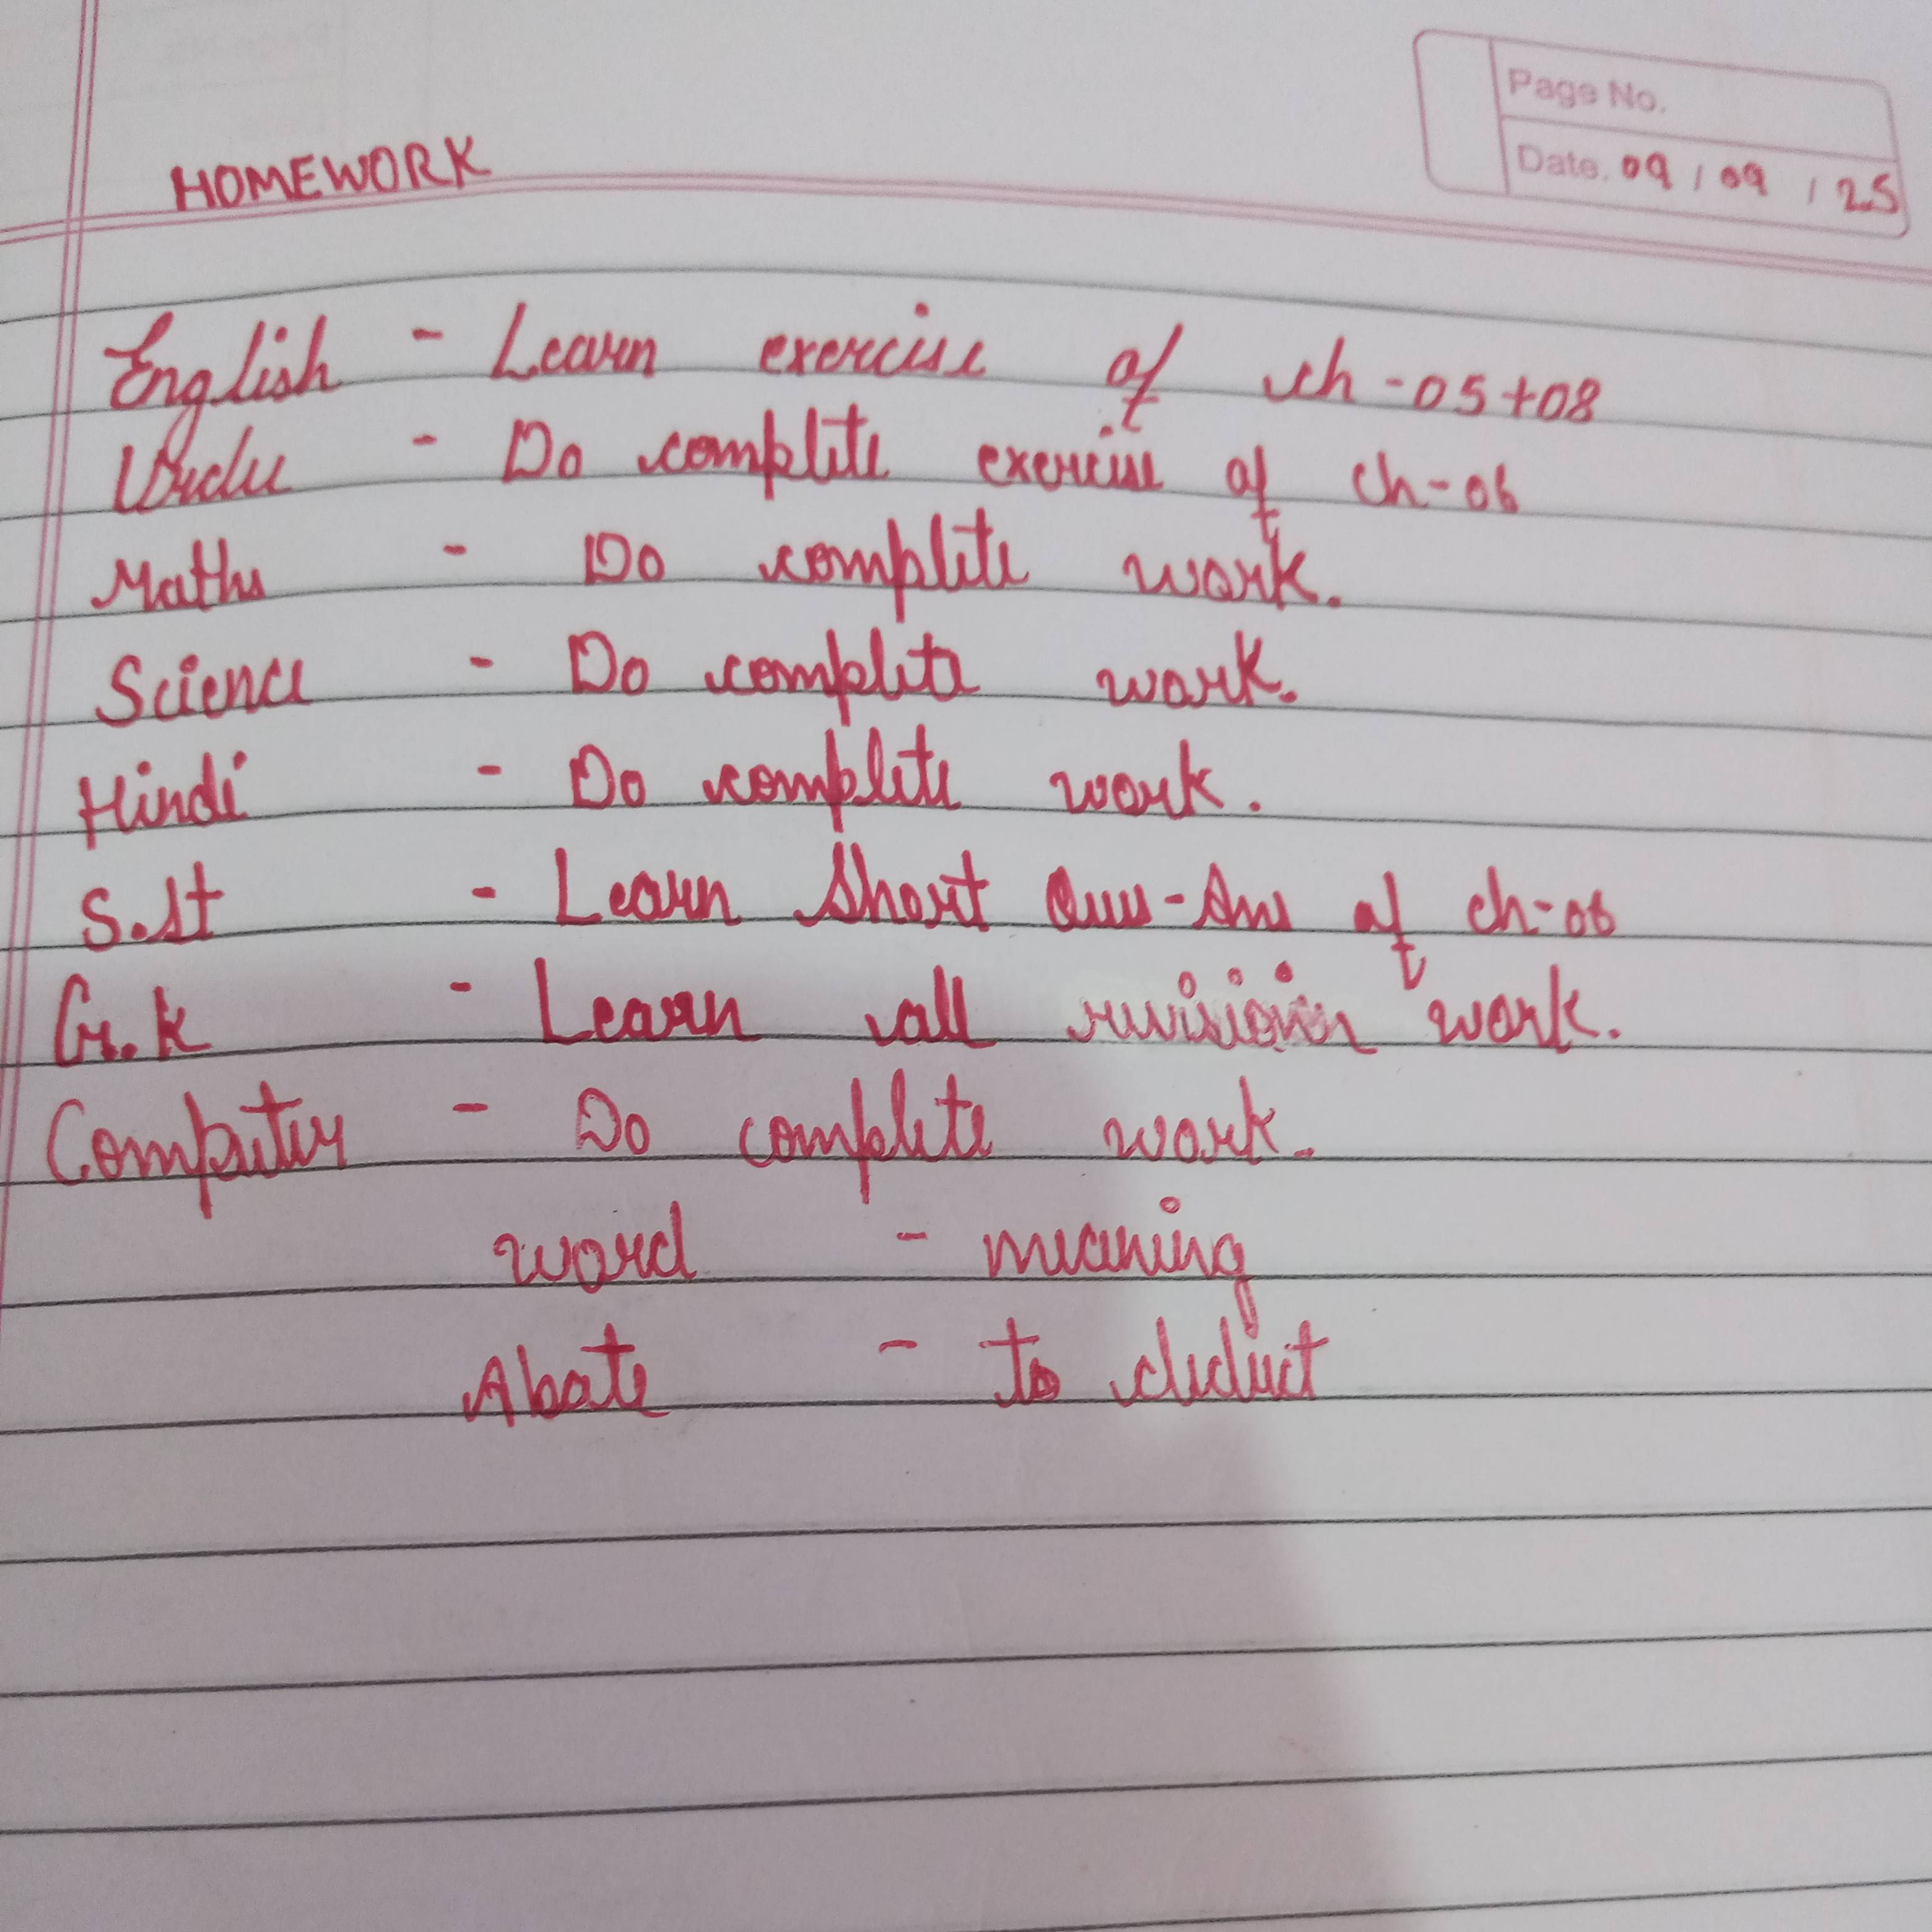 Page No.
Date. 09 / 09 / 25
HOMEWORK
English - Learn exercise of ch-05+08
Urdu - Do complete exercise of ch-06
Maths - Do complete work.
Science - Do complete work.
Hindi - Do complete work.
S.st - Learn Short Ques-Ans of ch-06
G.K - Learn all revision work.
Computer - Do complete work.
word - meaning
Abate - to deduct